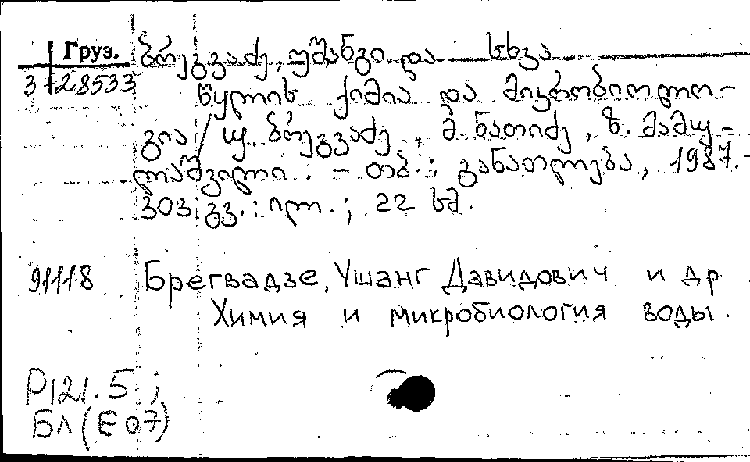 Груз. ბრეგვაძე, უშანგი და სხვა
3-28533
წყლის ქიმია და მიკრობიოლო-
გია / უ. ბრეგვაძე, მ. ნათიძე, ზ. მამუ-
ლაშვილი. - თბ.: განათლება, 1987.-
303 გვ.: ილ.; 22 სმ.
91118 Брегвадзе, Ушанг Давидович и др
Химия и микробиология воды.
P121.5;
БЛ(E07)